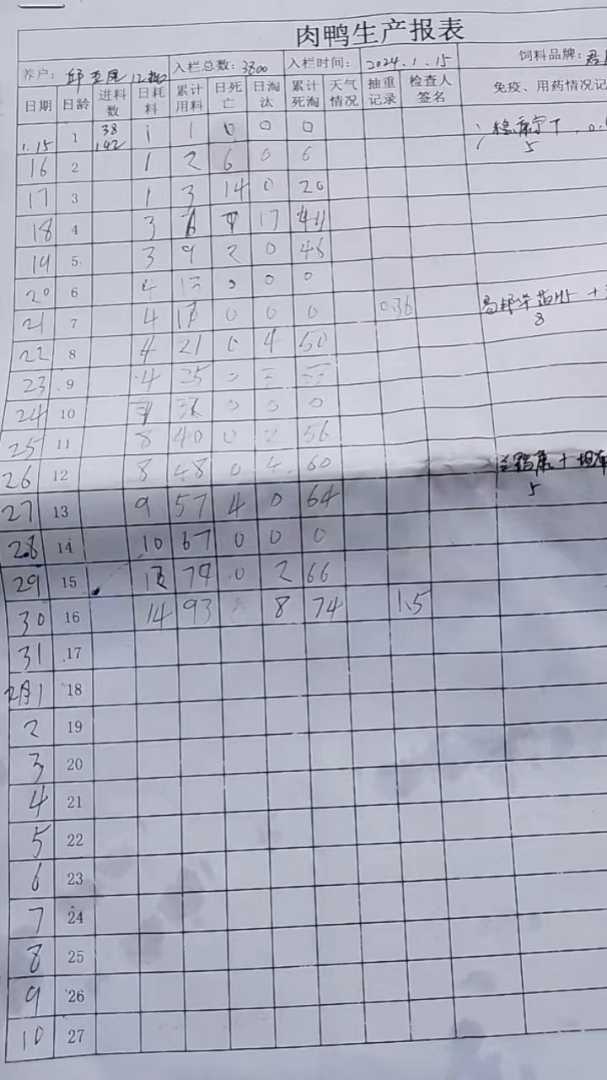 肉鸭生产报表
养户: 12 入栏总数: 3800 入栏时间: 2024.1.15 饲料品牌:
日期 日龄 进料数 日耗料 累计用料 日死亡 日淘汰 累计死淘 天气情况 抽重记录 检查人签名 免疫、用药情况记
1.15 1 38 142 1 1 0 0 0
16 2 1 2 6 0 6
17 3 1 3 14 0 20
18 4 3 6 17
19 5 3 9 2 0 46
20 6 4 13 0 0 0
21 7 4 17 0 0 0 0.36
22 8 4 21 0 4 50
23 9 4 25
24 10 0 0 0
25 11 8 40 0 2 56
26 12 8 48 0 4 60
27 13 9 57 4 0 64
28 14 10 67 0 0 0
29 15 12 79 0 2 66
30 16 14 93 8 74 1.5
31 17
2月1 18
2 19
3 20
4 21
5 22
6 23
7 24
8 25
9 26
10 27